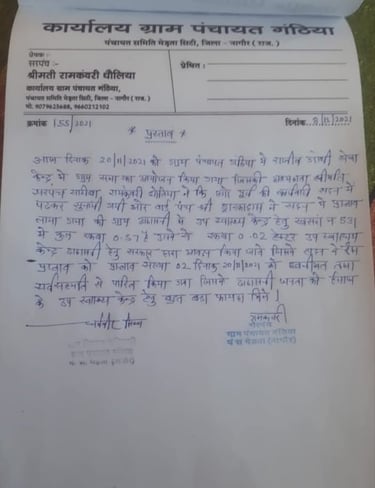 कार्यालय ग्राम पंचायत गंठिया
पंचायत समिति मेड़ता सिटी, जिला - नागौर ( राज. )
प्रेषक:-
सरपंच :-
श्रीमती रामकंवरी धौलिया
कार्यालय ग्राम पंचायत गंठिया,
पंचायत समिति मेड़ता सिटी, जिला - नागौर ( राज. )
मो. 9079623688, 9660212102
प्रेषित :
क्रमांक 155/2021
दिनांक
* प्रस्ताव *
आज दिनांक 20/11/2021 को ग्राम पंचायत गंठिया में राजीव गांधी सेवा
केन्द्र में ग्राम सभा का आयोजन किया गया जिसकी अध्यक्षता श्रीमति
सरपंच रामकंवरी ने कि और पूर्व की कार्यवाही सदन में
पढकर सुनायी गयी और वार्ड पंच श्री ने सदन में प्रस्ताव
लाया गया की ग्राम में उप स्वास्थ्य केन्द्र हेतु खसरा न 531
में कुल रकबा 0.57 है रकबा 0.02 हेक्टर उप स्वास्थ्य
केन्द्र हेतु सरकार द्वारा किया जावे जिसमे सदन ने
प्रस्ताव को प्रस्ताव संख्या 02 दिनांक 20/11/2021 को तथा
सर्वसम्मति से पारित किया गया जिससे जनता को ईलाज
के उप स्वास्थ्य केन्द्र हेतु बहुत बड़ा फायदा मिले |
रामकंवरी
सरपंच
ग्राम पंचायत गंठिया
पं.स. मेड़ता (नागौर)